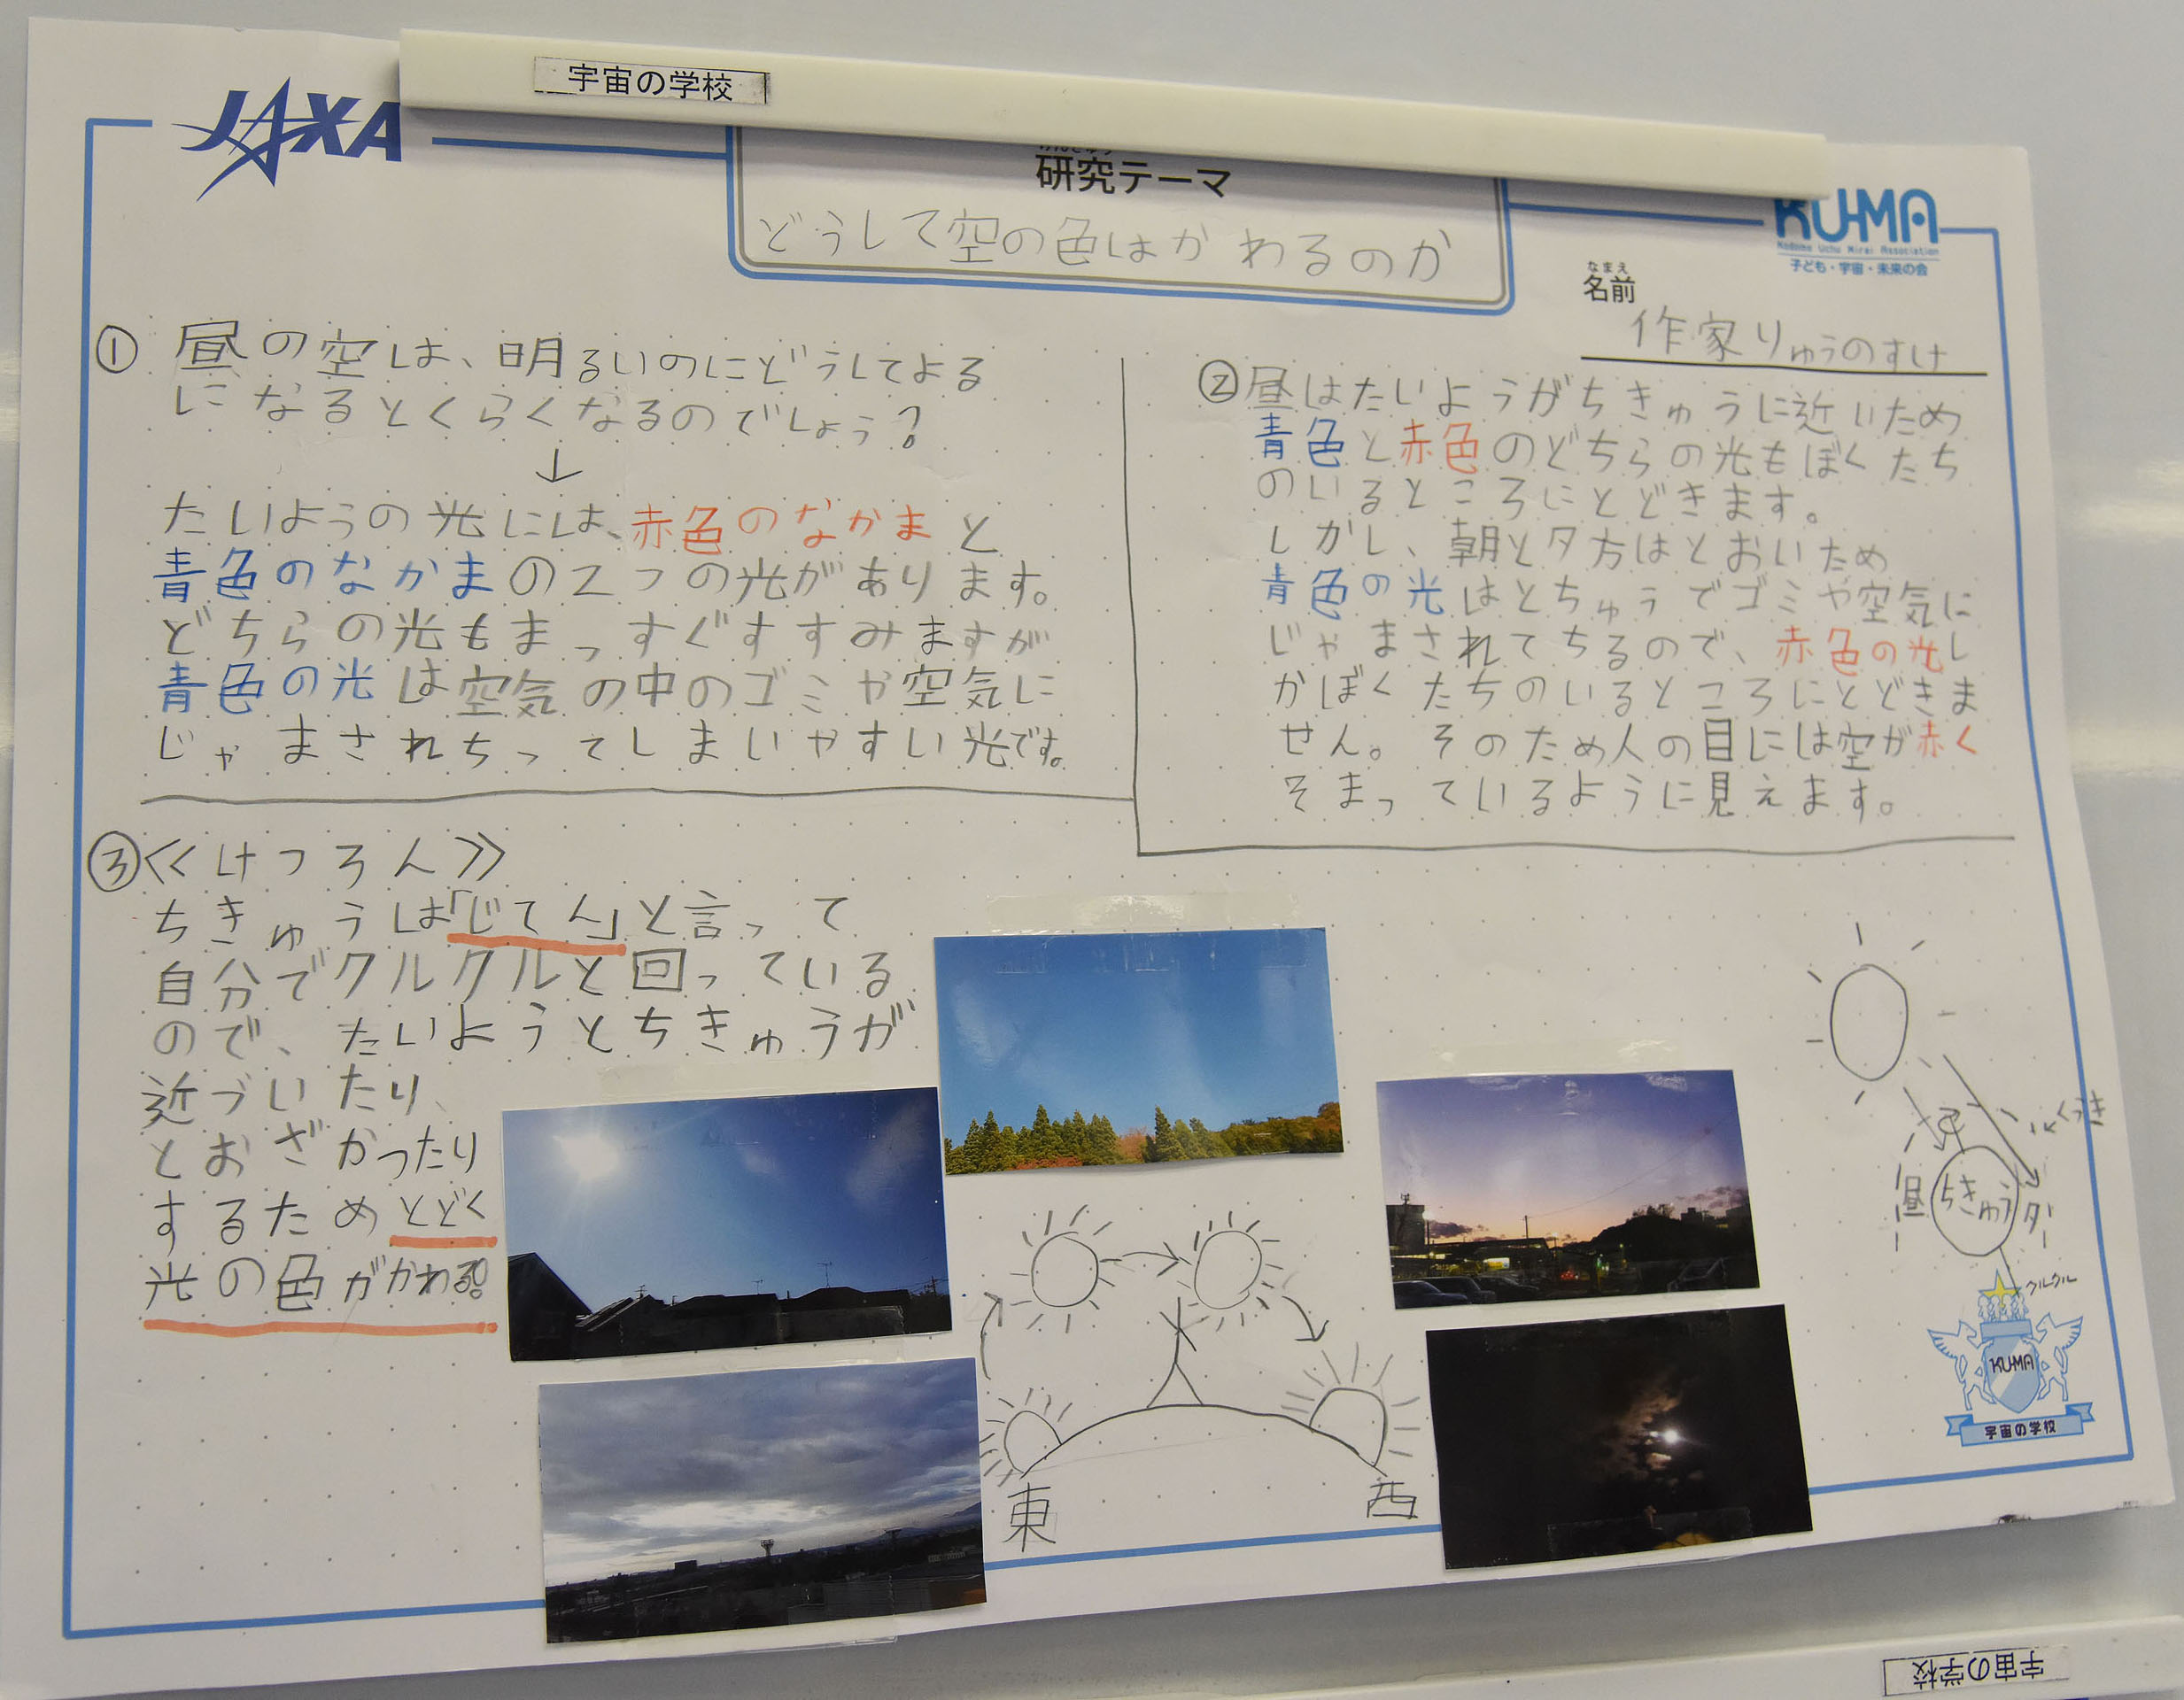 宇宙の学校
JAXA
研究テーマ
どうして空の色はかわるのか
KU-MA
Kodomo Uchu Mirai Association
子ども・宇宙・未来の会
なまえ
名前
作家りゅうのすけ
① 昼の空は、明るいのにどうしてよる
になるとくらくなるのでしょう?
↓
たいようの光には、赤色のなかまと
青色のなかまの2つの光があります。
どちらの光もまっすぐすすみますが
青色の光は空気の中のゴミや空気に
じゃまされちってしまいやすい光です。
② 昼はたいようがちきゅうに近いため
青色と赤色のどちらの光もぼくたち
のいるところにとどきます。
しかし、朝と夕方はとおいため
青色の光はとちゅうでゴミや空気に
じゃまされてちるので、赤色の光し
かぼくたちのいるところにとどきま
せん。そのため人の目には空が赤く
そまっているように見えます。
③ 《けつろん》
ちきゅうは「じてん」と言って
自分でクルクルと回っている
ので、たいようとちきゅうが
近づいたり、
とおざかったり
するためとどく
光の色がかわる。
東
西
くうき
昼
ちきゅう
夕
クルクル
KU-MA
宇宙の学校
宇宙の学校